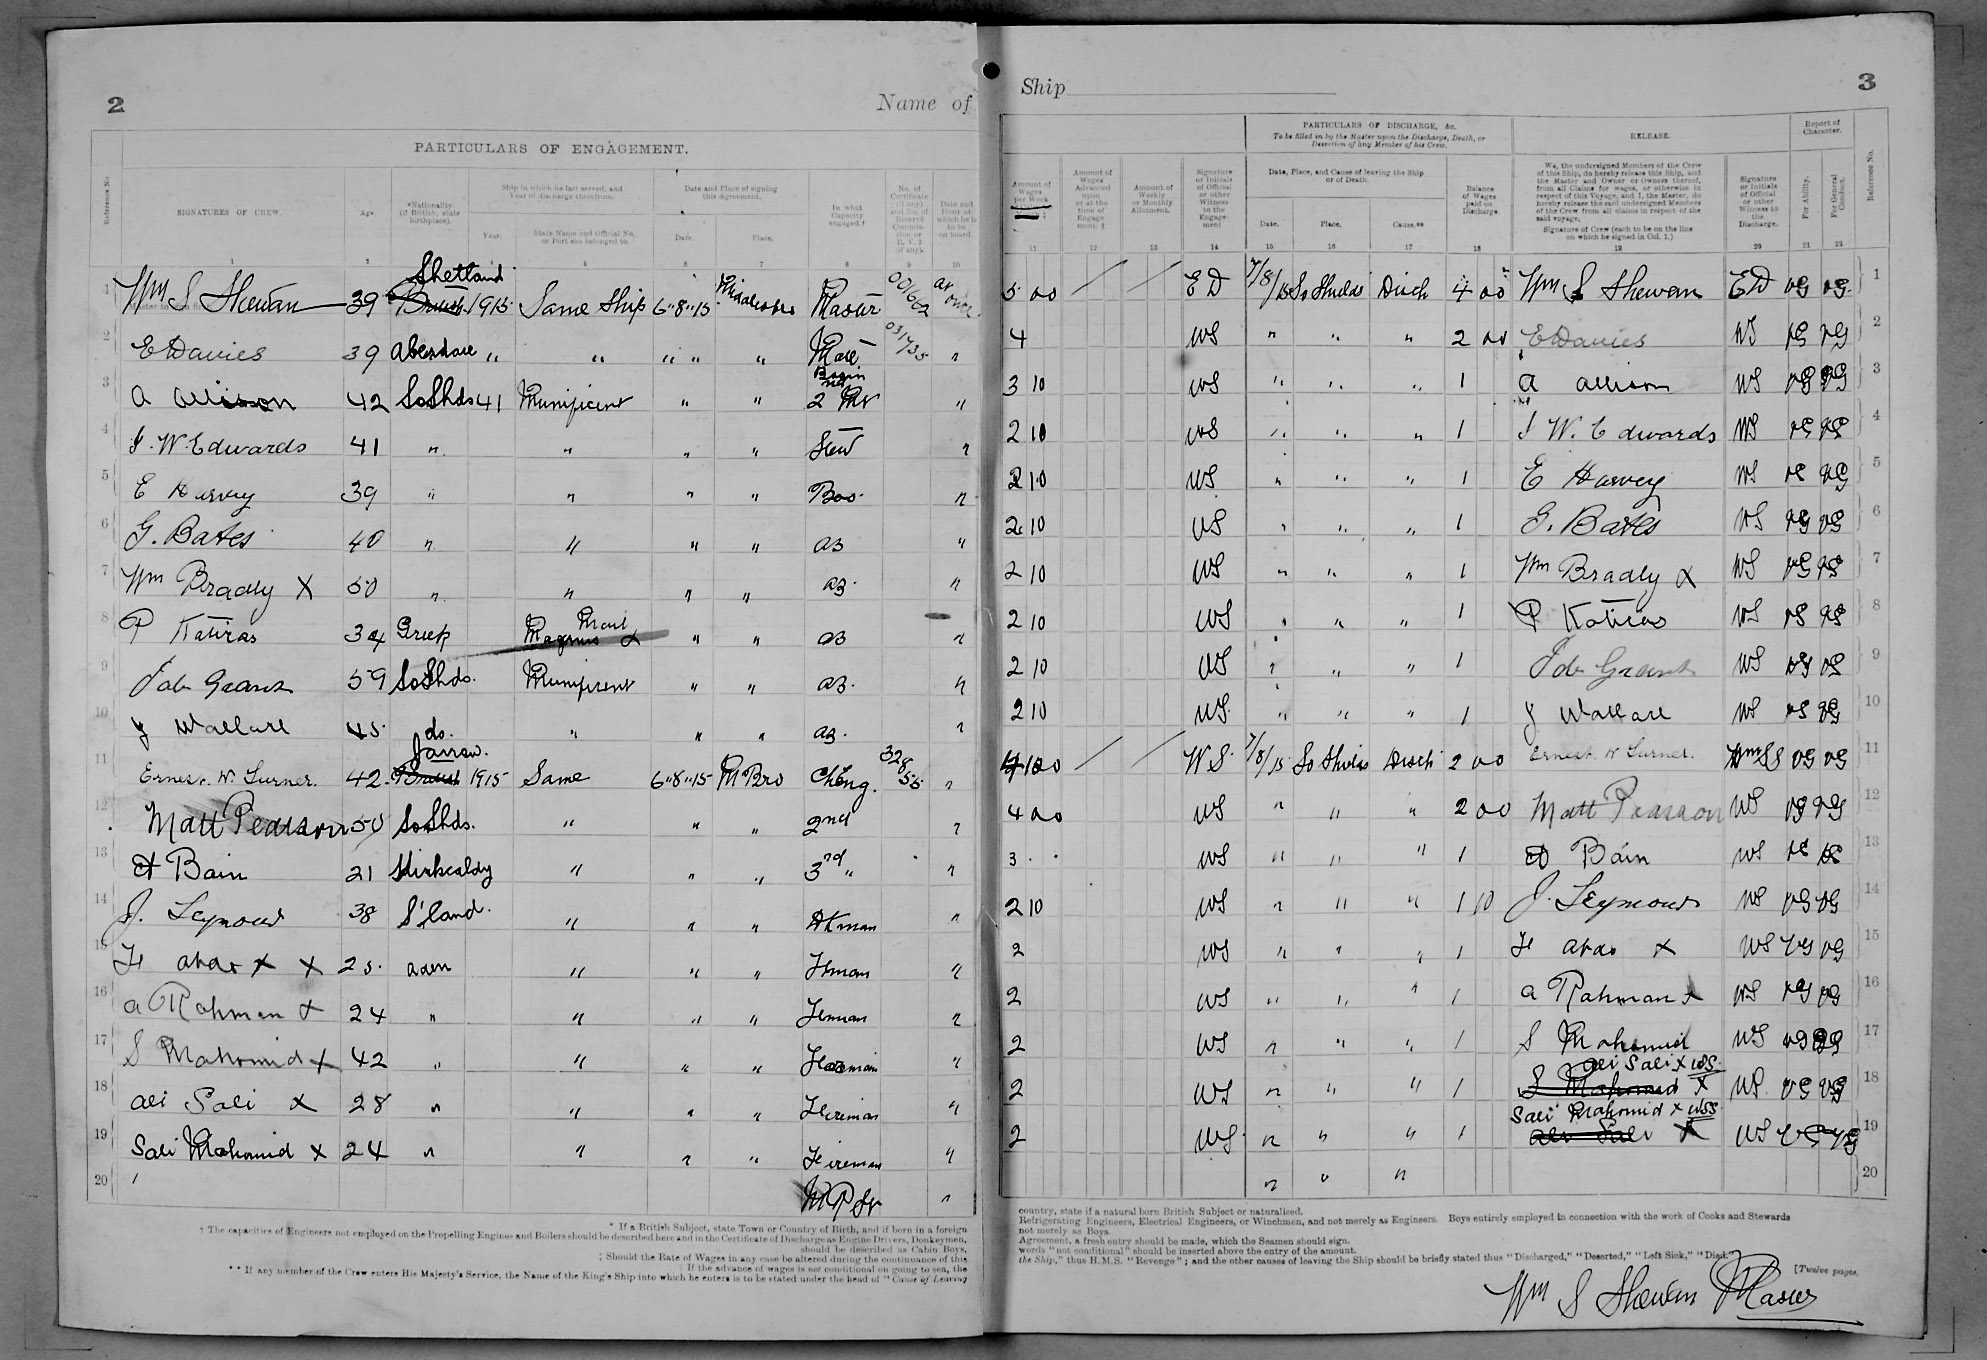 2
Name of
Ship
3
PARTICULARS OF ENGAGEMENT.
Reference No.
SIGNATURES OF CREW.
Age
*Nationality (if British, state birthplace).
Ship in which he last served, and Year of discharge therefrom.
Year.
State Name and Official No. or Port she belonged to.
Date and Place of signing this Agreement.
Date.
Place.
In what Capacity engaged.†
No. of Certificate (if any) and No. of Reserve Commission or R. V. 2 (if any).
Date and Hour at which he is to be on board.
Amount of Wages per Week
Amount of Wages Advanced upon or at the time of Engagement.‡
Amount of Weekly or Monthly Allotment.
Signature or Initials of Official or other Witness to the Engagement
PARTICULARS OF DISCHARGE, &c.
To be filled in by the Master upon the Discharge, Death, or Desertion of any Member of his Crew.
Date, Place, and Cause of leaving the Ship or of Death.
Date.
Place.
Cause.**
Balance of Wages paid on Discharge.
RELEASE.
We, the undersigned Members of the Crew of this Ship, do hereby release this Ship, and the Master and Owner or Owners thereof, from all Claims for wages, or otherwise in respect of this Voyage, and I, the Master, do hereby release the said undersigned Members of the Crew from all claims in respect of the said voyage.
Signature of Crew (each to be on the line on which he signed in Col. 1.)
Signature or Initials of Official or other Witness to the Discharge.
Report of Character.
For Ability.
For General Conduct.
Reference No.
1 2 3 5 6 7 8 9 10 11 12 13 14 15 16 17 18 19 20 21 22
1 Wm S Shewan 39 Shetland British 1915 Same Ship 6"8"15 Middlesbro Master 001662 at once 5 00 / / ED 7/8/15 So Shields Disch 4 00 Wm S Shewan ED VG VG 1
2 E Davies 39 Aberdare " " " " " Mate 031735 " 4 WS " " " 2 00 E Davies WS VG VG 2
3 A Allison 42 So Shds 41 Munificent " " Bosin 2 Mr " 3 10 WS " " " 1 A Allison WS VG VG 3
4 J. W. Edwards 41 " " " " Stew " 2 10 WS " " " 1 J W. Edwards WS VG VG 4
5 E Harvey 39 " " " " Bos. " 2 10 WS " " " 1 E Harvey WS VG VG 5
6 G. Bates 40 " " " " AB " 2 10 WS " " " 1 G. Bates WS VG VG 6
7 Wm Bradly X 50 " " " " AB. " 2 10 WS " " " 1 Wm Bradly X WS VG VG 7
8 P Katiras 34 Greek Magnus " " AB " 2 10 WS " " " 1 P Katiras WS VG VG 8
9 Job Grant 59 So Shds. Munificent " " AB. " 2 10 WS " " " 1 Job Grant WS VG VG 9
10 J Wallace 45 do. " " " AB. " 2 10 WS " " " 1 J Wallace WS VG VG 10
11 Ernest W Turner. 42 Jarrow. British 1915 Same 6"8"15 MBro Ch Eng. 32855 " 4 10 0 / / W.S. 7/8/15 So Shields Disch 2 00 Ernest W Turner. WmSS VG VG 11
12 Matt Pearson 50 So Shds. " " " 2nd " 4 00 WS " " " 2 00 Matt Pearson WS VG VG 12
13 A Bain 21 Kirkcaldy " " " 3rd " " 3 . . WS " " " 1 A Bain WS VG VG 13
14 J. Seymour 38 S'land. " " " Dkman " 2 10 WS " " " 1 10 J. Seymour WS VG VG 14
15 X X 25 Aden " " " Fman " 2 WS " " " 1 X WS VG VG 15
16 A Rahman X 24 " " " " Fman " 2 WS " " " 1 A Rahman X WS VG VG 16
17 S Mahomid X 42 " " " " Fireman " 2 WS " " " 1 S Mahomid WS VG VG 17
18 Ali Sali X 28 " " " " Fireman " 2 WS " " " 1 Ali Sali X WSS. S Mahomid X WS VG VG 18
19 Sali Mahomid X 24 " " " " Fireman " 2 WS " " " 1 Sali Mahomid X WSS Ali Sali X WS VG VG 19
20 " " " " 20
* If a British Subject, state Town or Country of Birth, and if born in a foreign
country, state if a natural born British Subject or naturalized.
† The capacities of Engineers not employed on the Propelling Engines and Boilers should be described here and in the Certificate of Discharge as Engine Drivers, Donkeymen,
Refrigerating Engineers, Electrical Engineers, or Winchmen, and not merely as Engineers. Boys entirely employed in connection with the work of Cooks and Stewards
should be described as Cabin Boys,
not merely as Boys.
‡ Should the Rate of Wages in any case be altered during the continuance of this
Agreement, a fresh entry should be made, which the Seamen should sign.
If the advance of wages is not conditional on going to sea, the
words "not conditional" should be inserted above the entry of the amount.
** If any member of the Crew enters His Majesty's Service, the Name of the King's Ship into which he enters is to be stated under the head of "Cause of Leaving
the Ship," thus H.M.S. "Revenge"; and the other causes of leaving the Ship should be briefly stated thus "Discharged," "Deserted," "Left Sick," "Died."
[Twelve pages.
Wm S Shewan Master